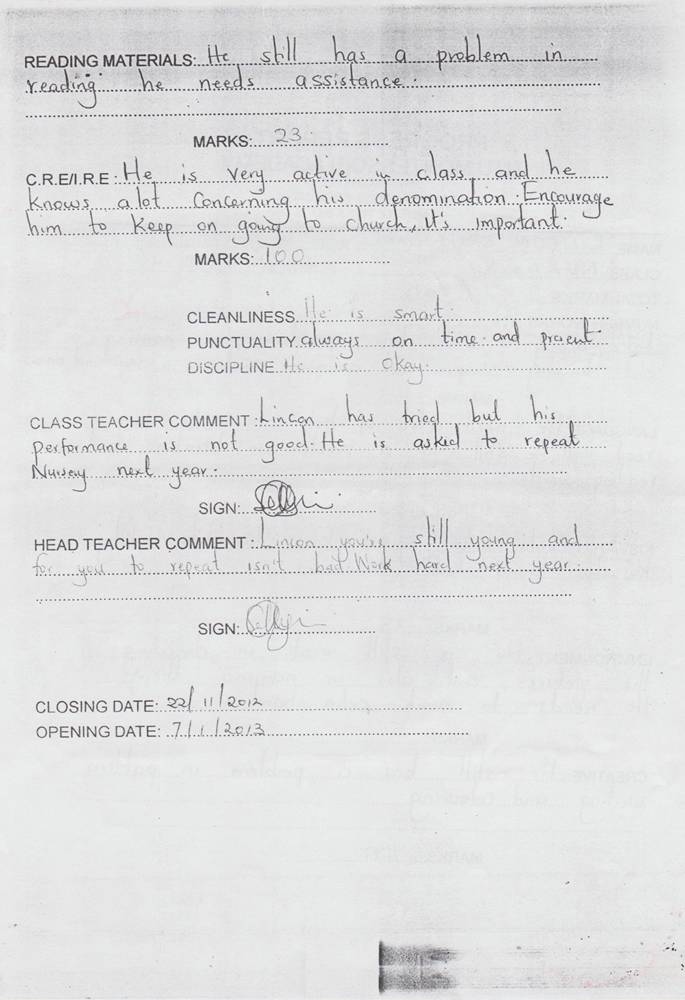 READING MATERIALS: He still has a problem in
reading he needs assistance.
MARKS: 23
C.R.E/I.R.E: He is very active in class and he
knows a lot concerning his denomination. Encourage
him to keep on going to church, it's important.
MARKS: 100
CLEANLINESS He is smart.
PUNCTUALITY always on time and present.
DISCIPLINE He is okay.
CLASS TEACHER COMMENT: Lincon has tried but his
performance is not good. He is asked to repeat
Nursey next year.
SIGN:
HEAD TEACHER COMMENT: Lincon you're still young and
for you to repeat isn't bad. Work hard next year.
SIGN:
CLOSING DATE: 22/11/2012
OPENING DATE: 7/1/2013